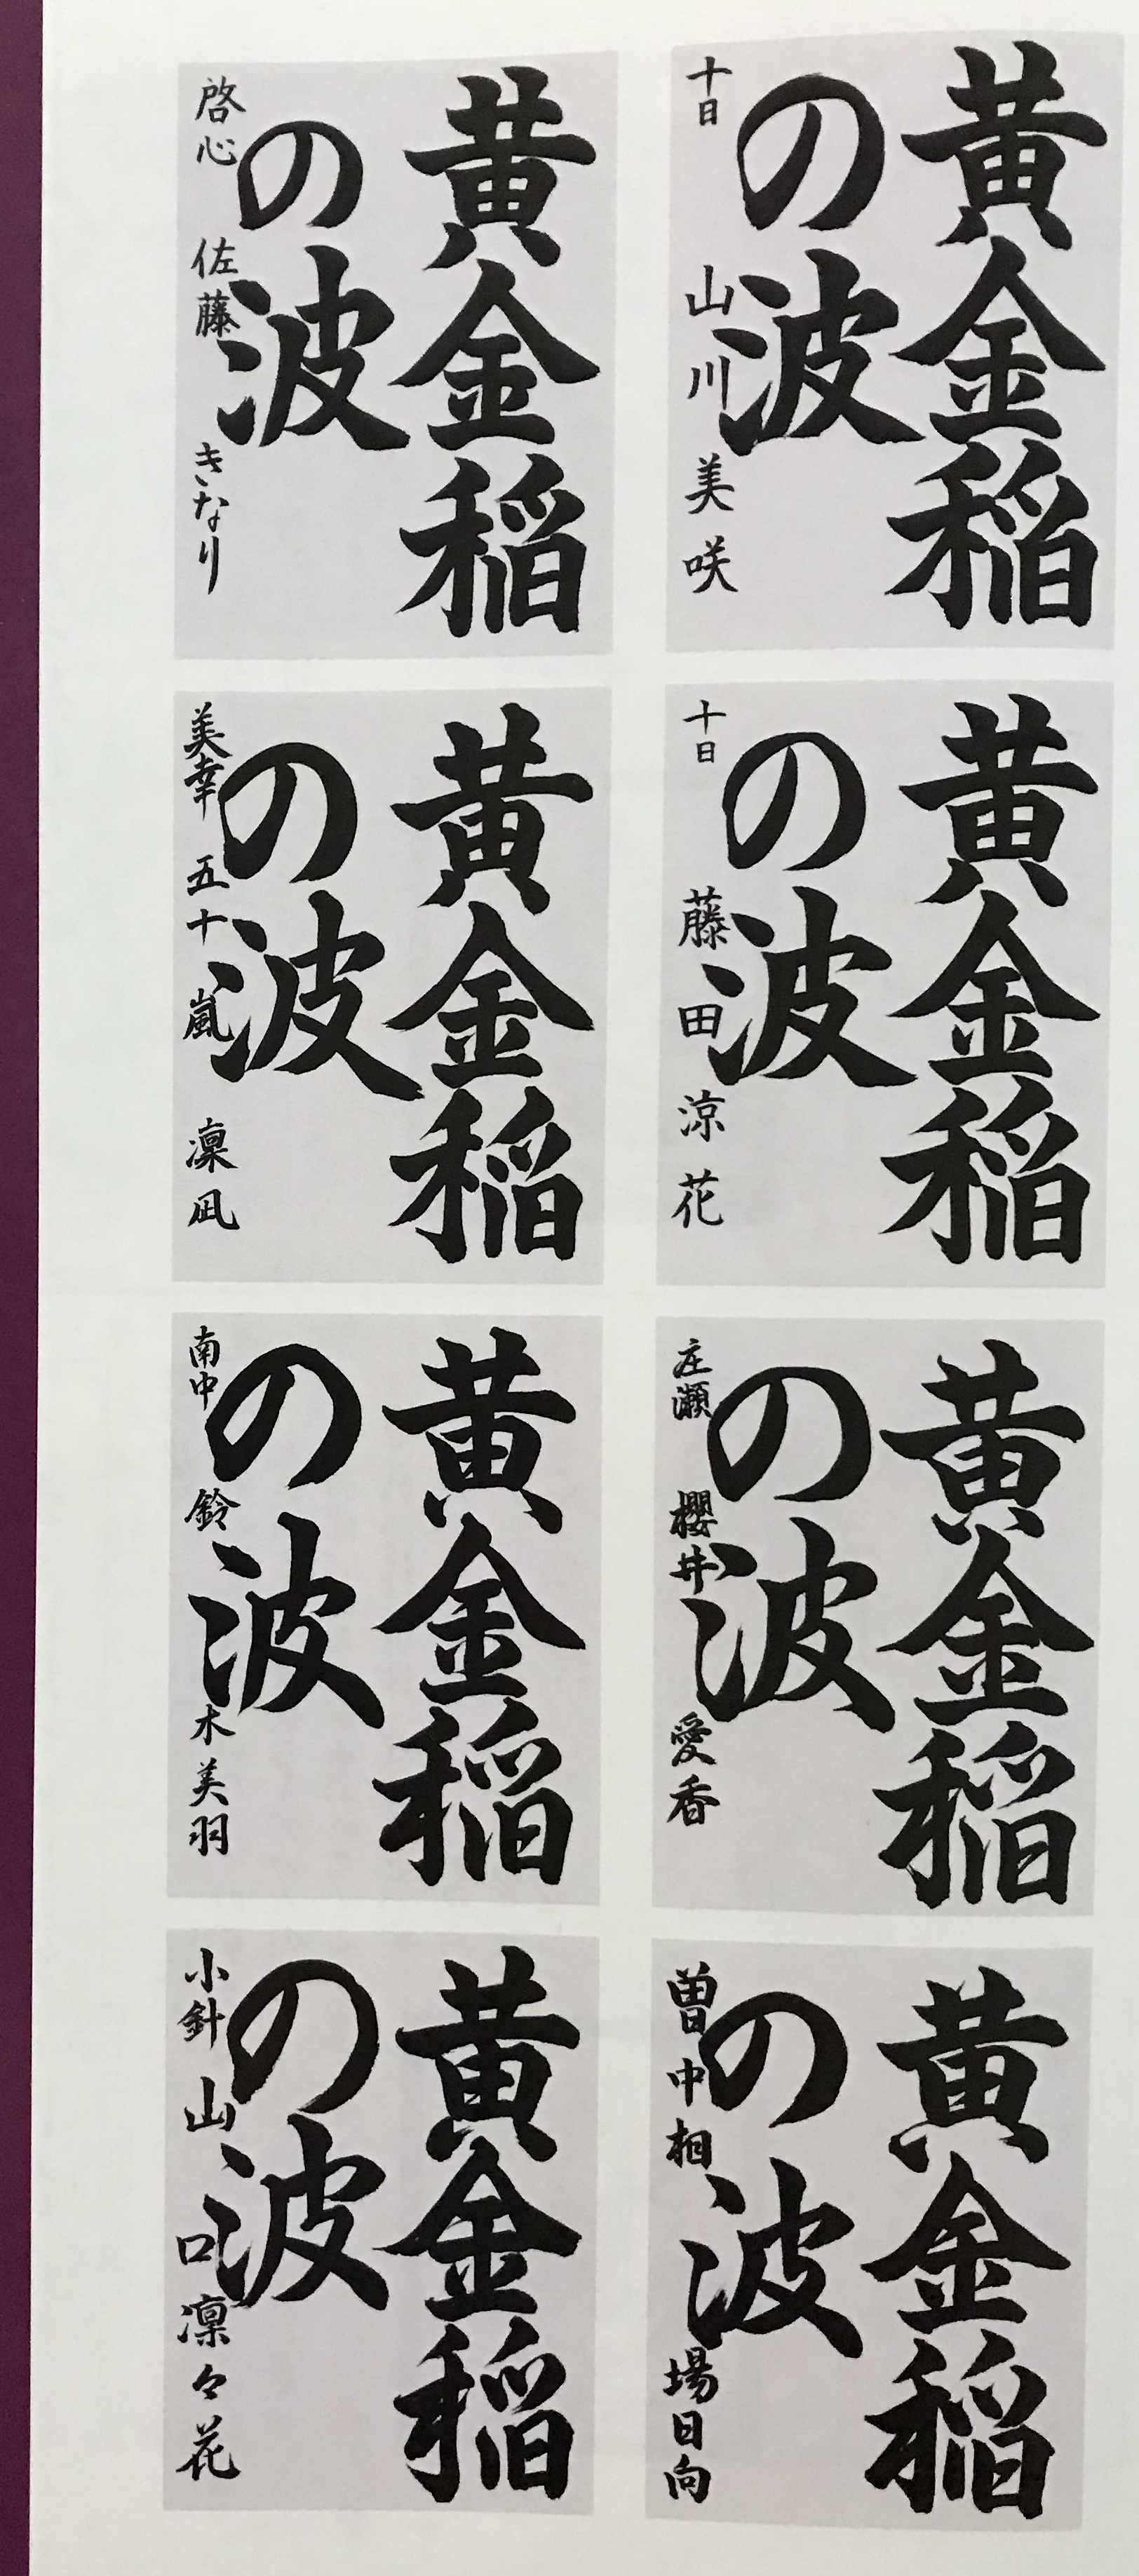 黄金稲
の波
十日 山川美咲
黄金稲
の波
十日 藤田涼花
黄金稲
の波
庄瀬 櫻井愛香
黄金稲
の波
曽中 相場日向
黄金稲
の波
啓心 佐藤きなり
黄金稲
の波
美幸 五十嵐凜凪
黄金稲
の波
南中 鈴木美羽
黄金稲
の波
小針 山口凜々花